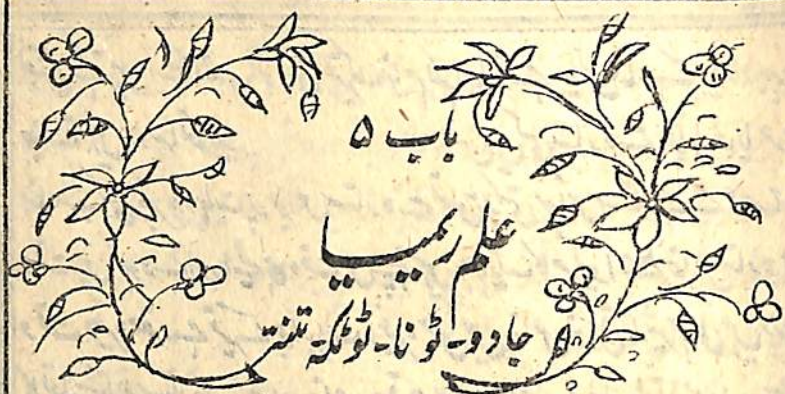 باب ۵
علم ریمیا
جادو۔ ٹونا۔ ٹوٹکہ۔ تنتر